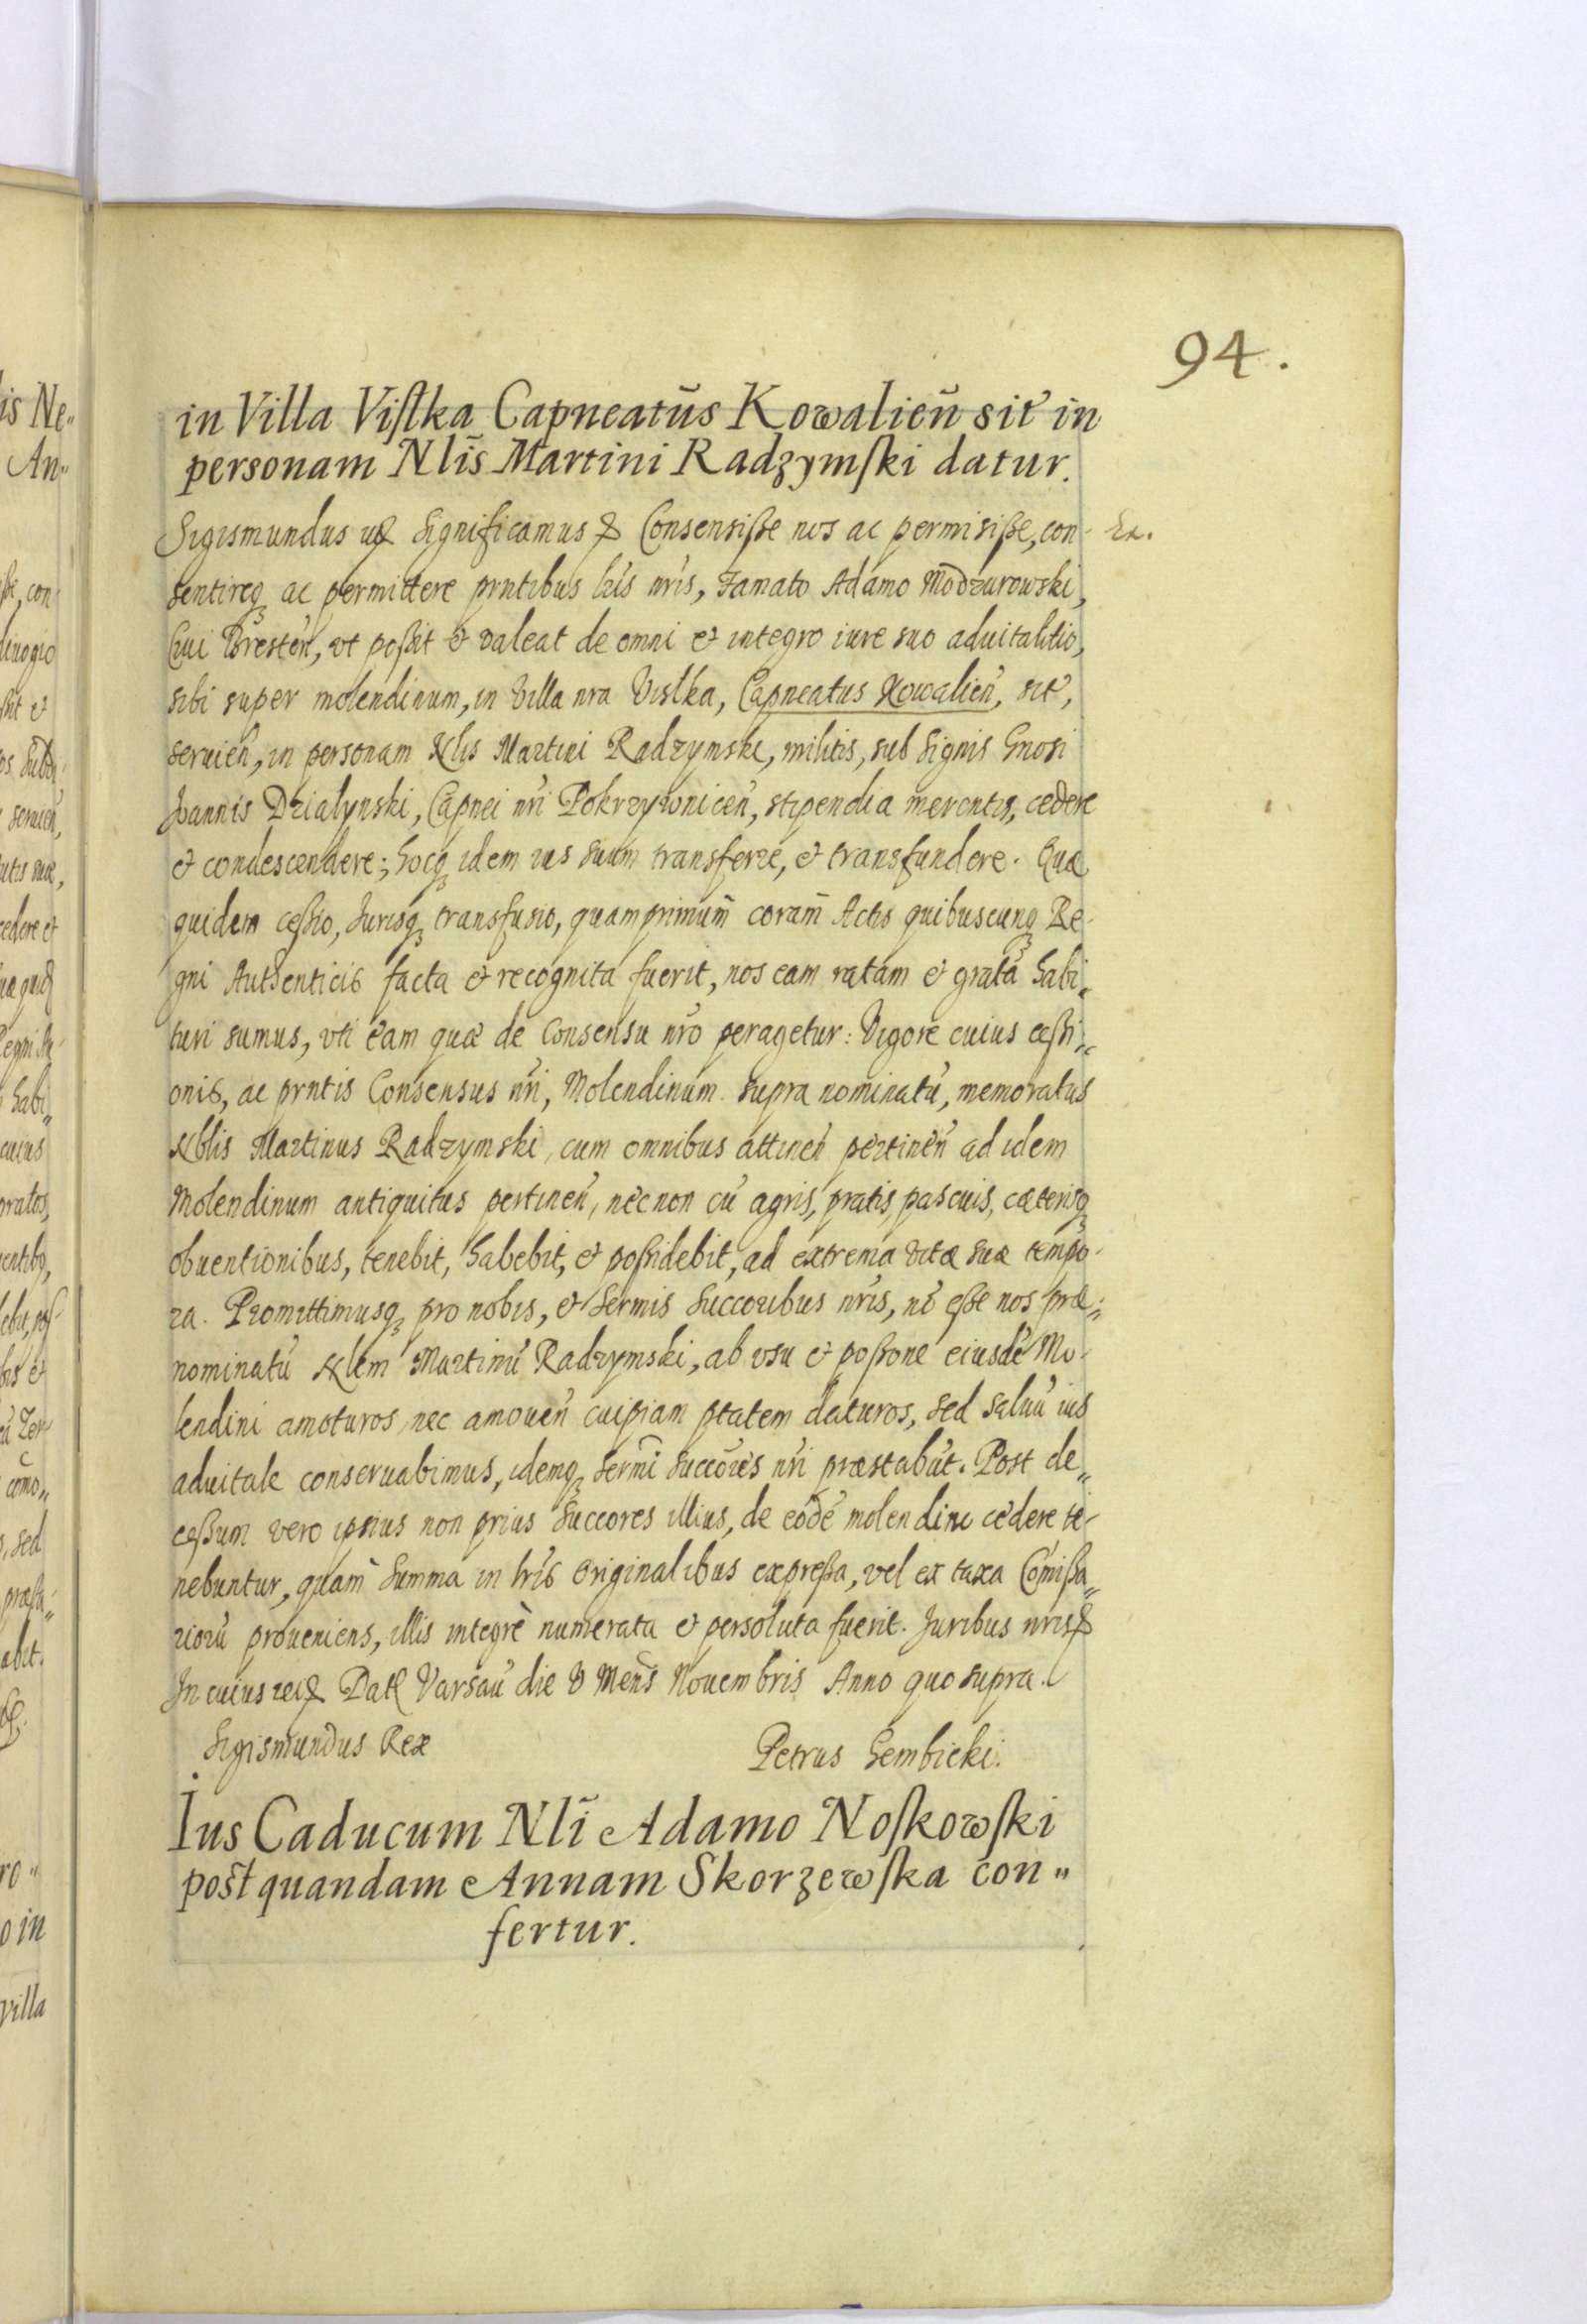 94.
in Villa Vistka Capneatũs Kowalień sit̃ in
personam Nlĩs Martini Radzymski datur.
Sigismundus u&c Significamus &c Consensisse nos ac permisisse, con- Ex.
sentireq₃ ac permittere prntibus lrĩs nrĩs, Famato Adamo Modzurowski,
Ciui Bresteń, vt possit et valeat de omni et integro iure suo aduitalitio,
sibi super molendinum, in Villa nra Vistka, Capneatus Kowalień, sit̃,
seruień, in personam Nlis Martini Radzymski, militis, sub Signis Gnosi
Joannis Dzialynski, Capnei nrĩ Pokrzywniceń, stipendia merentis, cedere
et condescendere; hocq₃ idem ius suum transferre, et transfundere. Quæ
quidem cessio, Jurisq₃ transfusio, quamprimum̃ coram̃ Actis quibuscunq₃ Re-
gni Authenticis facta et recognita fuerit, nos eam ratam et gratã habi„
turi sumus, vti eam quæ de Consensu nrõ peragetur: Vigore cuius cessi„
onis, ac prntis Consensus nrĩ, Molendinum supra nominatũ, memoratus
Nblis Martinus Radzymski, cum omnibus attineń pertineń ad idem
Molendinum antiquitus pertineń, nec non cũ agris, pratis, pascuis, cæterisq₃
obuentionibus, tenebit, habebit, et possidebit, ad extrema vitæ suæ tempo-
ra. Promittimusq₃ pro nobis, et Sermis Succoribus nrĩs, nõ esse nos præ„
nominatũ Nlem Martinũ Radzymski, ab vsu et possone eiusdẽ Mo-
lendini amoturos, nec amoueń cuipiam ptatem daturos, sed saluũ ius
aduitale conseruabimus, idemq₃ Sermĩ Succores nrĩ præstabũt. Post de„
cessum vero ipsius non prius Succores illius, de eodẽ molendino cedere te-
nebuntur, quam̃ Summa in lrĩs Originalibus expressa, vel ex taxa Comissa„
riorũ proueniens, illis integrè numerata et persoluta fuerit. Juribus nris &c
In cuius rei &c Dat Varsaũ die V Mens̃ Nouembris Anno quo supra.
Sigismundus Rex Petrus Gembicki.
Ius Caducum Nlĩ Adamo Noskowski
post quandam Annam Skorzewska con„
fertur.